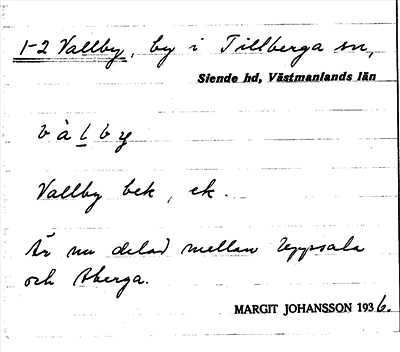 1-2 Vallby, by i Tillberga sn,
Siende hd, Västmanlands län
v à l b y
Vallby bek, ek.
Är nu delad mellan Uppsala
och Åberga.
MARGIT JOHANSSON 1936.